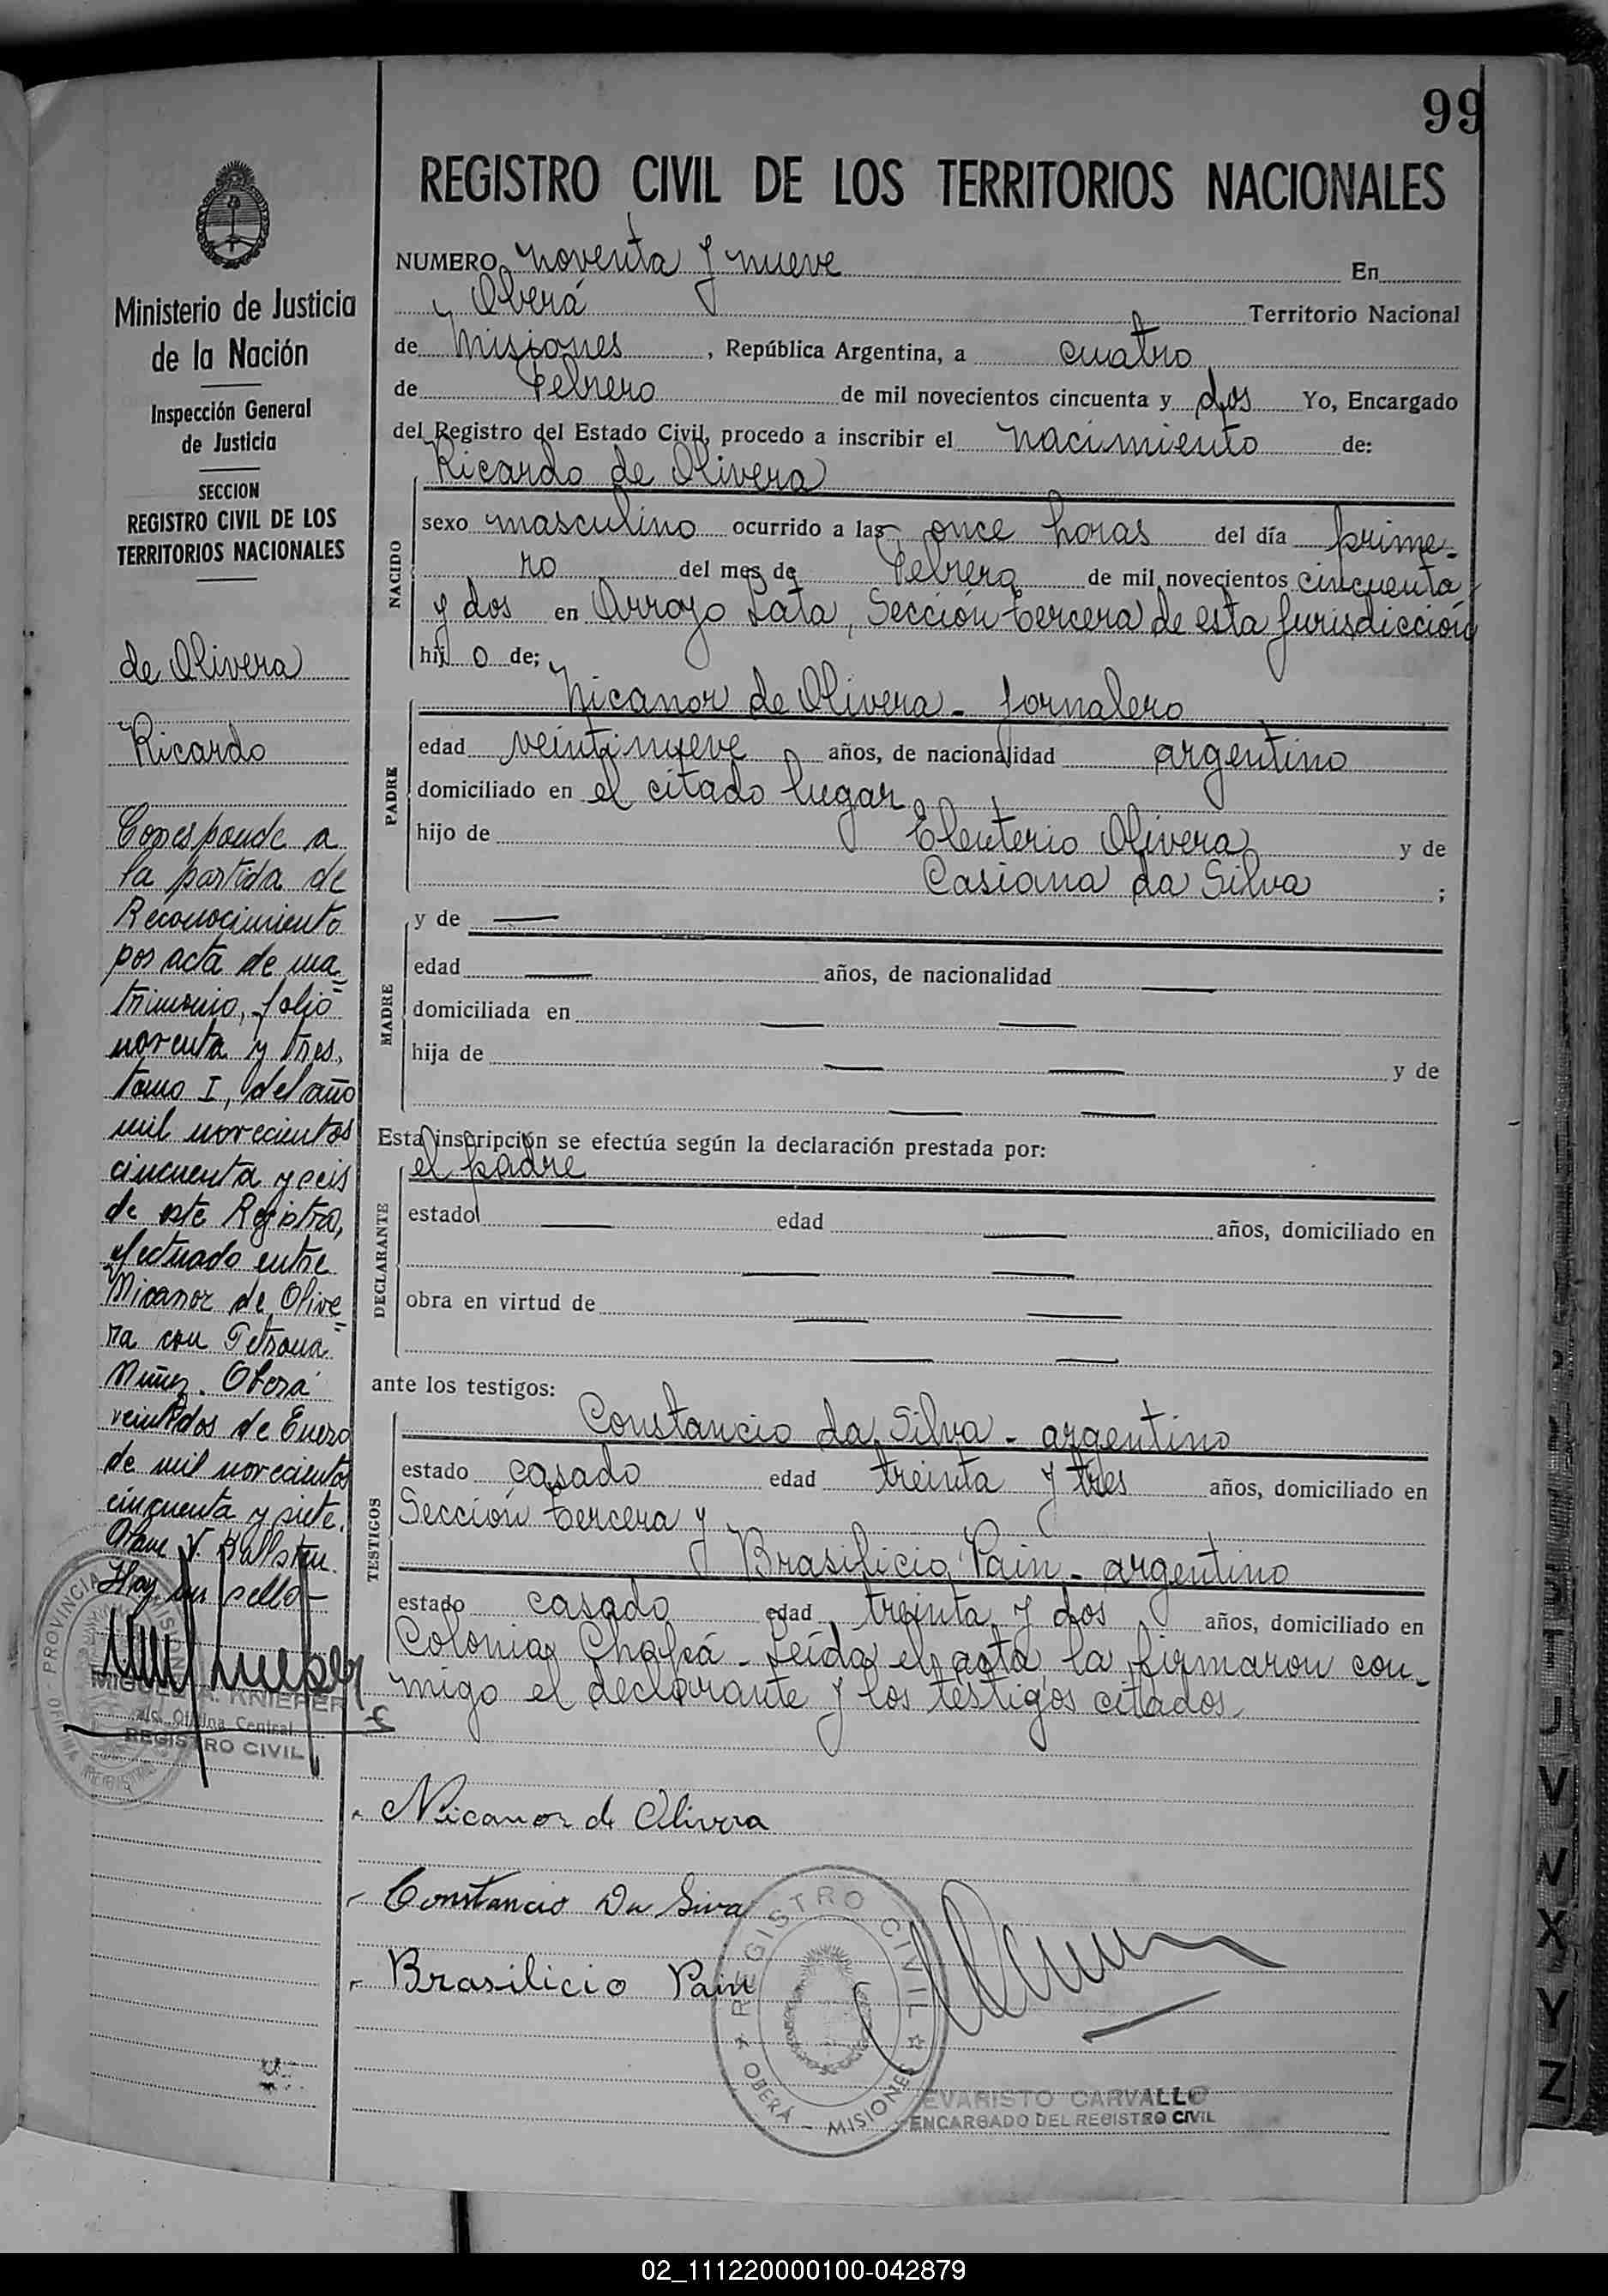 99
REGISTRO CIVIL DE LOS TERRITORIOS NACIONALES
Ministerio de Justicia
de la Nación
Inspección General
de Justicia
SECCION
REGISTRO CIVIL DE LOS
TERRITORIOS NACIONALES
de Olivera
Ricardo
Corresponde a
la partida de
Reconocimiento
por acta de ma
trimonio, folio
noventa y tres,
tomo I, del año
mil novecientos
cincuenta y seis
de este Registro,
efectuado entre
Nicanor de Olive
ra con Petrona
Núñez. Oberá
veintidos de Enero
de mil novecientos
cincuenta y siete.
Hay un sello
MIGUEL A. KNIEPER
Oficina Central
REGISTRO CIVIL
NUMERO noventa y nueve En
Oberá Territorio Nacional
de Misiones, República Argentina, a cuatro
de Febrero de mil novecientos cincuenta y dos Yo, Encargado
del Registro del Estado Civil, procedo a inscribir el nacimiento de:
Ricardo de Olivera
NACIDO
sexo masculino ocurrido a las once horas del día prime-
ro del mes de Febrero de mil novecientos cincuenta
y dos en Arroyo Lata, Sección tercera de esta jurisdicción
hijo de;
PADRE
Nicanor de Olivera - jornalero
edad veintinueve años, de nacionalidad argentino
domiciliado en el citado lugar
hijo de Eleuterio Olivera y de
Casiana da Silva ;
MADRE
y de —
edad — años, de nacionalidad —
domiciliada en — —
hija de — — y de
— —
Esta inscripción se efectúa según la declaración prestada por:
el padre
DECLARANTE
estado — edad — años, domiciliado en
— —
obra en virtud de — —
— —
ante los testigos:
TESTIGOS
Constancio da Silva - argentino
estado casado edad treinta y tres años, domiciliado en
Sección tercera y
Brasilicio Pain - argentino
estado casado edad treinta y dos años, domiciliado en
Colonia Chapá - Leída el acta la firmaron con-
migo el declarante y los testigos citados
Nicanor de Olivera
Constancio Da Siva
Brasilicio Pain
REGISTRO CIVIL
OBERÁ - MISIONES
EVARISTO CARVALLO
ENCARGADO DEL REGISTRO CIVIL
J
V
X
Y
Z
02_111220000100-042879